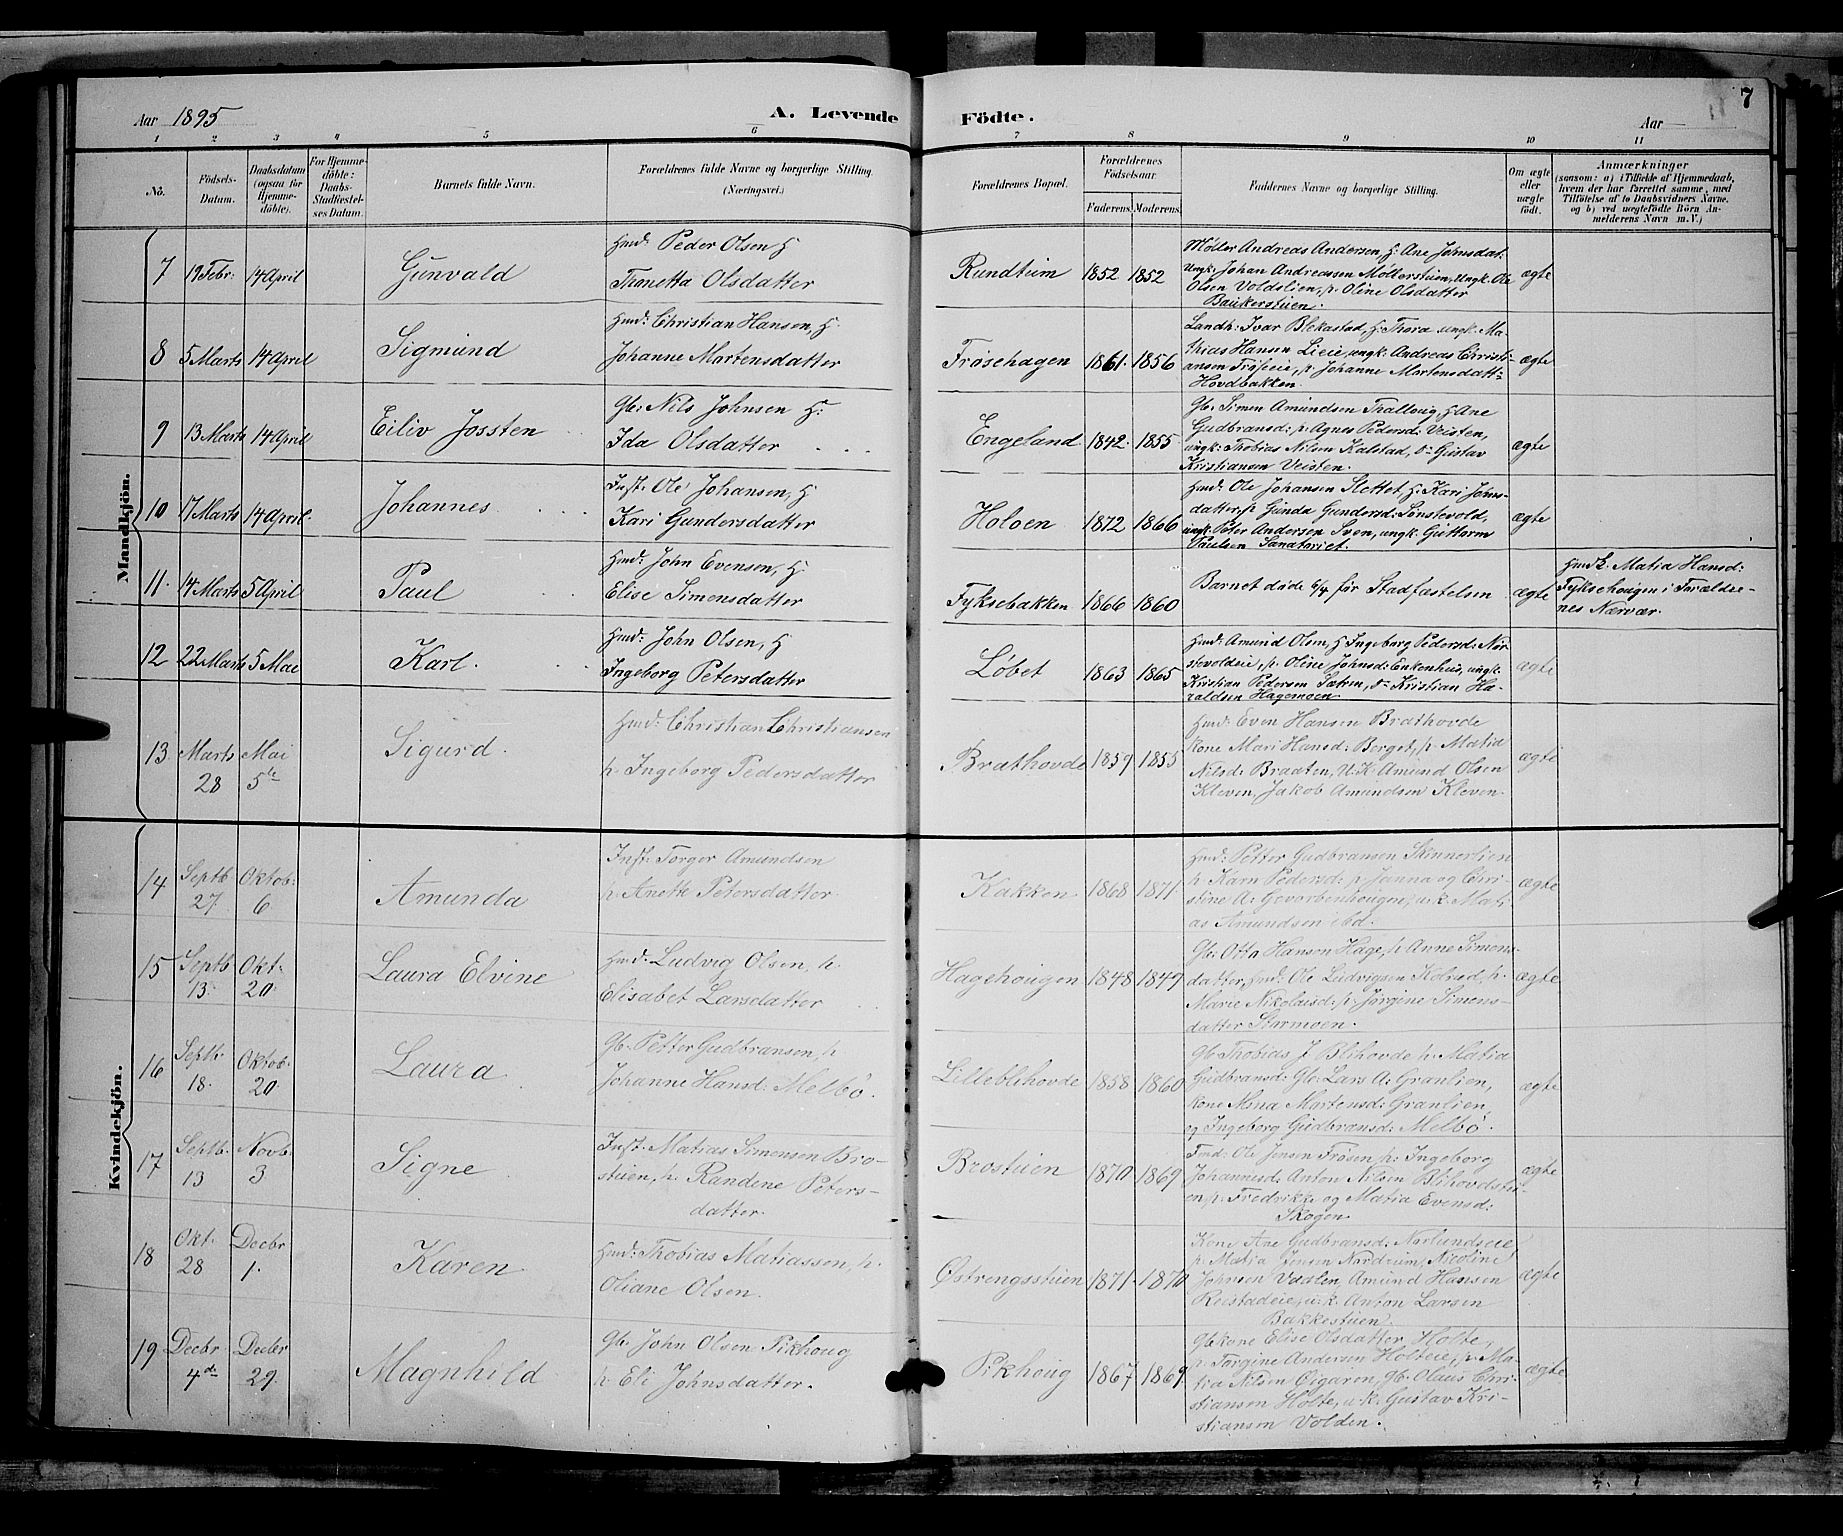 Aar 1895
A. Levende Födte.
Aar
7
1 2 3 4 5 6 7 8 9 10 11
No.
Födsels-Datum.
Daabsdatum (ogsaa for Hjemme-döbte).
For Hjemme-döbte: Daabs-Stadfæstel-ses Datum.
Barnets fulde Navn.
Forældrenes fulde Navne og borgerlige Stilling. (Næringsvei.)
Forældrenes Bopæl.
Forældrenes Födselsaar.
Faderens. Moderens.
Faddernes Navne og borgerlige Stilling.
Om ægte eller uægte födt.
Anmærkninger
(saasom: a) i Tilfælde af Hjemmedaab,
hvem der har forrettet samme, med
Tilföielse af to Daabsvidners Navne.
og b) ved uægtefödte Börn An-
melderens Navn m. V.)
Mandkjön.
7 19 Febr: 14 April Gunvald
Gmd: Peder Olsen H
Thonetta Olsdatter
Rundtuim 1852 1852
Møller Andreas Andersen, H: Ane Johnsdat:
Ungk: Johan Andreassen Møllerstuen, Ungk. Ole
Olsen Voldslien, p. Oline Olsdatter
Baukerstuen.
ægte
8 5 Marts 14 April Sigmund
Gmd: Christian Hansen, H.
Johanne Martensdatter
Frøsehagen 1861. 1856
Landh: Ivar Blekastad, H: Thora ungk: Ma-
thias Hansen Lieie, ungk: Andreas Christi-
ansen Frøseie, p. Johanne Martensdatt:
Hovdbakken.
ægte
9 13 Marts 14 April Eiliv Jossten
Gb: Nils Johnsen H:
Ida Olsdatter
Engeland 1842. 1855
Gb: Simen Amundsen Thalloug, H Ane
Gudbransd: p. Agnes Pedersd: Veisten,
ungk: Thobias Nilsen Kalstad, do Gustav
Kristiansen Veisten.
ægte
10 17 Marts 14 April. Johannes
Inst: Ole Johansen, H
Kari Gundersdatter
Holoen 1872 1866
Gmd: Ole Johansen Slettet, H: Kari Johns-
datter, p. Gunda Gundersd: Sønstevold,
ungk: Peter Andersen Sven, ungk: Guttorm
Paulsen Sanatoriet.
ægte
11. 14 Marts 5 April Paul
Gmd: John Evensen, H.
Elise Simensdatter
Fyksebakken 1866 1860
Barnet døde 6/4 før Stadfæstelsen
ægte
Gmdk. Matia Hansd:
Fyksehougen i Foreldre-
nes Nærvær.
12 22 Marts 5 Mai Karl.
Gmd: John Olsen, H
Ingeborg Petersdatter
Løbet 1863 1865
Gmd: Amund Olsen, H Ingeborg Pedersd: Nør-
stevoldeie, p. Oline Johnsd: Enkenhus, ungk.
Kristian Pedersen Sætren, do Kristian Ha-
raldsen Hagemoen
ægte
13 Marts 28 Mai 5te Sigurd.
Gmd: Christian Christiansen
h. Ingeborg Pedersdatter
Brathovde 1859 1855
Gmd: Even Hansen Brathovde
kone Mari Hansd: Berget, p. Matia
Nilsd: Braaten, U.K. Amund Olsen
Kleven, Jakob Amundsen Kleven.
ægte
Kvindekjön.
14 Septb 27 Oktob: 6 Amunda
Inst: Torger Amundsen
h. Anette Petersdatter.
Kakken 1868 1871.
Gmd: Petter Gudbransen Skinnerlien
h. Karn Pedersd: p. Janna og Chri-
stine A: Govorbenhougen, u.k. Mati-
as Amundsen ibd.
ægte
15 Septb 13. Okt. 20 Laura Elvine
Gmd: Ludvig Olsen, h.
Elisabet Larsdatter
Hagehougen 1848 1849
Gb: Otta Hansen Hage, h. Anne Simens-
datter, Gmd: Ole Ludvigsen Kolrød, h.
Marie Nikolaisd: p. Jørgine Simens-
datter Starmoen.
ægte
16 Septb. 18. Oktob. 20 Laura
Gb. Petter Gudbransen, h
Johanne Hansd: Melbö.
Lilleblihovde 1858 1860
Gb. Thobias J. Blihovde h. Matia
Gudbransd: Gb: Lars A: Granlien,
kone Mina Martensd: Granlien,
og Ingeborg Gudbransd: Melbö.
ægte
17 Septb. 13 Novb. 3 Signe
Inst: Matias Simensen Bro-
stuen, h. Randene Peters-
datter.
Brostuen 1870 1869
Gmd: Ole Jensen Frösen h: Ingeborg
Johannesd: Anton Nilsen Blihovdstu-
en, p. Fredrikke og Matia Evensd:
Skogen.
ægte
18 Okt. 28 Decbr 1. Karen
Gmd: Thobias Matiassen, h.
Oliane Olsen.
Østrengsstuen 1871. 1870
Kone Ane Gudbransd: Nørlundseie,
p. Matia Jensen Nordrum, Nicoline
Johnsen Vaalen, Amund Hansen
Reistadeie, u.k. Anton Larsen
Bakkestuen.
ægte
19 Decbr 4de Decbr 29. Magnhild
Gb. John Olsen Pikhoug
h. Eli Johnsdatter.
Pikhoug 1867 1869
Gbkone Elise Olsdatter Holte,
p. Torgine Andersen Holteie, p. Ma-
tia Nilsen Øigaren, gb. Olaus Chri-
stiansen Holte, u.k. Gustav Kri-
stiansen Volden.
ægte